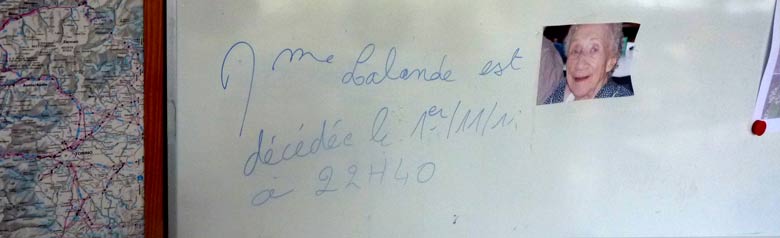 Mme Lalande est
décédée le 1er/11/1
à 22H40